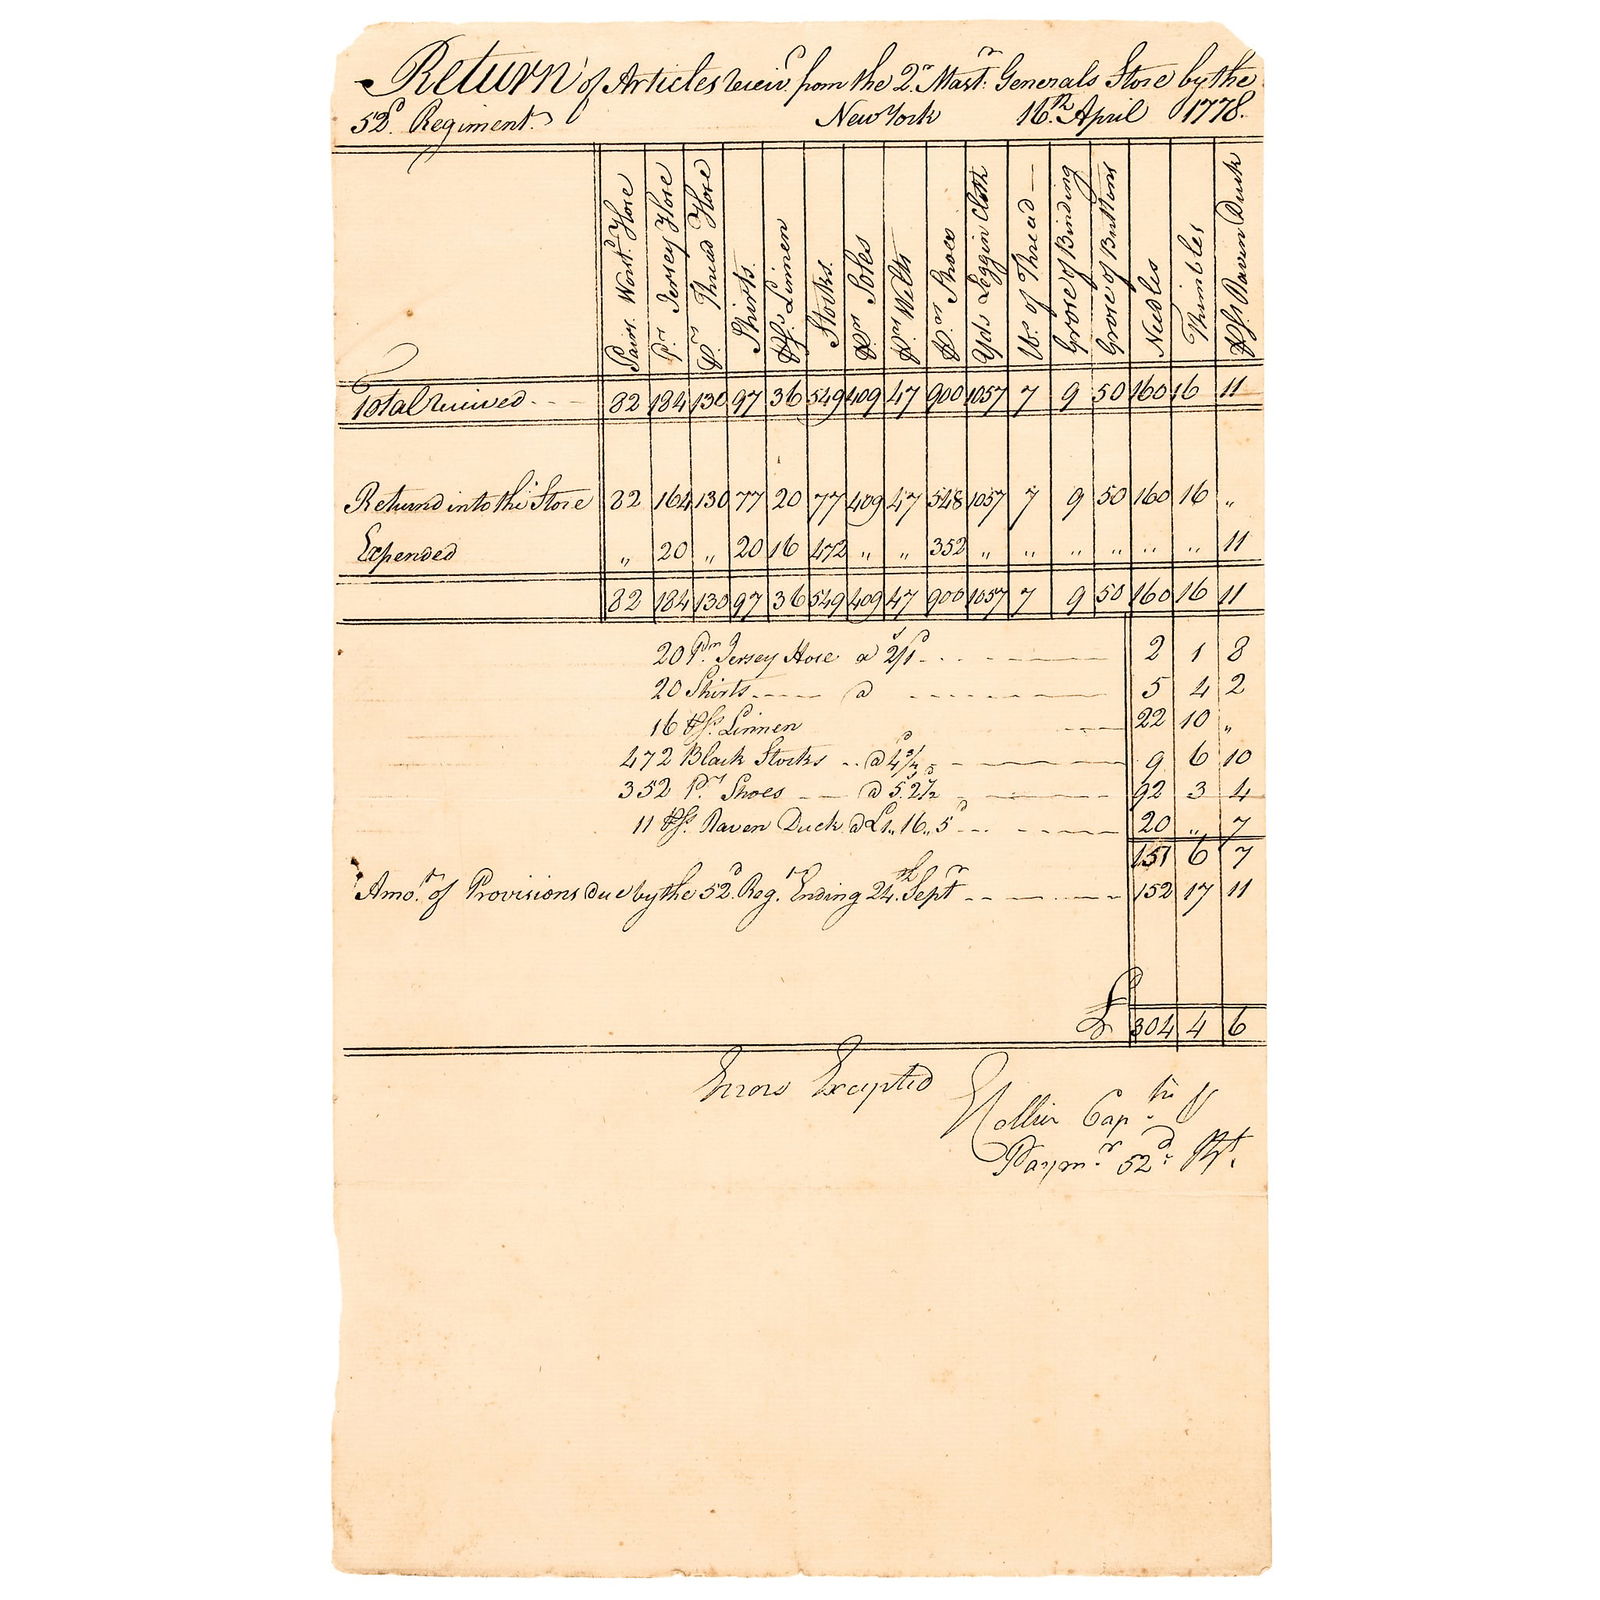 Return of Articles receiv.d from the Q.r Mast.r Generals Store by the
52.d Regiment. New York 16.th April 1778.
Pairs Worst.d Hose
P.rs Jersey Hose
P.rs Thread Hose
Shirts.
Ps. Linnen
Stocks.
P.rs Soles
P.rs Welts
P.rs Shoes
Yds Leggin Cloth
lb.s of Thread —
Grose of Binding
Grose of Buttons
Needles
Thimbles
Ps. Raven Duck
Total received - - - 82 184 130 97 36 549 409 47 900 1057 7 9 50 160 16 11
Returnd into the Store 82 164 130 77 20 77 409 47 548 1057 7 9 50 160 16 "
Expended " 20 " 20 16 472 " " 352 " " " " " " 11
82 184 130 97 36 549 409 47 900 1057 7 9 50 160 16 11
20 P.rs Jersey Hose @ 2s/1d - - - 2 1 8
20 Shirts - - - @ - - - 5 4 2
16 Ps. Linnen - - - 22 10 "
472 Black Stocks - - @ 4d 3/4 - - - 9 6 10
352 P.rs Shoes - - - @ 5s.2d 1/2 - - - 92 3 4
11 Ps. Raven Duck @ £1,, 16,, 5d - - - 20 " 7
151 6 7
Amo.t of Provisions due by the 52.d Reg.t Ending 24.th Sept.r - - - 152 17 11
£ 304 4 6
Errors Excepted
Collier Cap.tn &
Paym.r 52.d Rt.